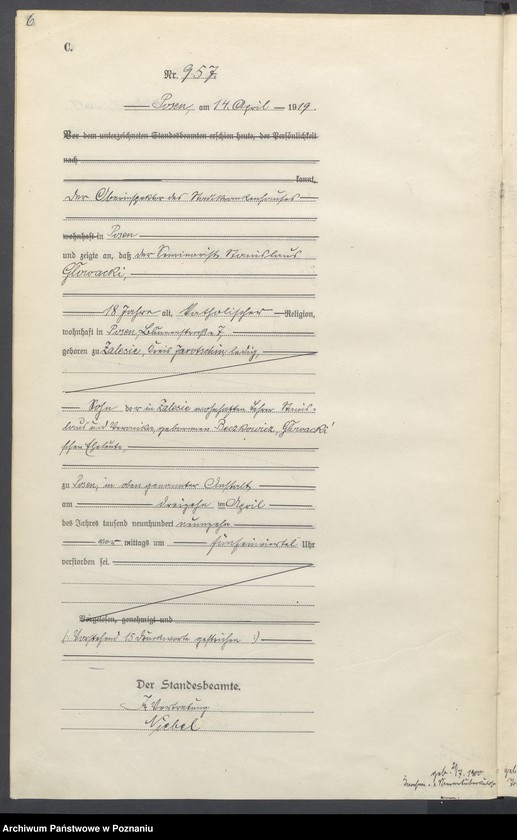 6
C.
Nr. 957.
Posen, am 14. April 1919.
Vor dem unterzeichneten Standesbeamten erschien heute, der Persönlichkeit
nach
kannt,
Der Oberinspektor des Stadtkrankenhauses
wohnhaft in Posen
und zeigte an, daß der Seminarist Stanislaus
Głowacki,
18 Jahre alt, katholischer Religion,
wohnhaft in Posen, Blumenstraße 7,
geboren zu Zalesie, Kreis Jarotschin, ledig,
Sohn der in Zalesie wohnhaften Lehrer Stanis-
laus und Veronika, geborenen Reczkowicz, Głowacki'
schen Eheleute,
zu Posen, in oben genannter Anstalt
am dreizehn ten April
des Jahres tausend neunhundert neunzehn
vor mittags um fünfeinviertel Uhr
verstorben sei.
Vorgelesen, genehmigt und
(Vorstehend 15 Druckworte gestrichen.)
Der Standesbeamte.
In Vertretung
Niebel
geb. 2/7. 1900
geb.
Archiwum Państwowe w Poznaniu